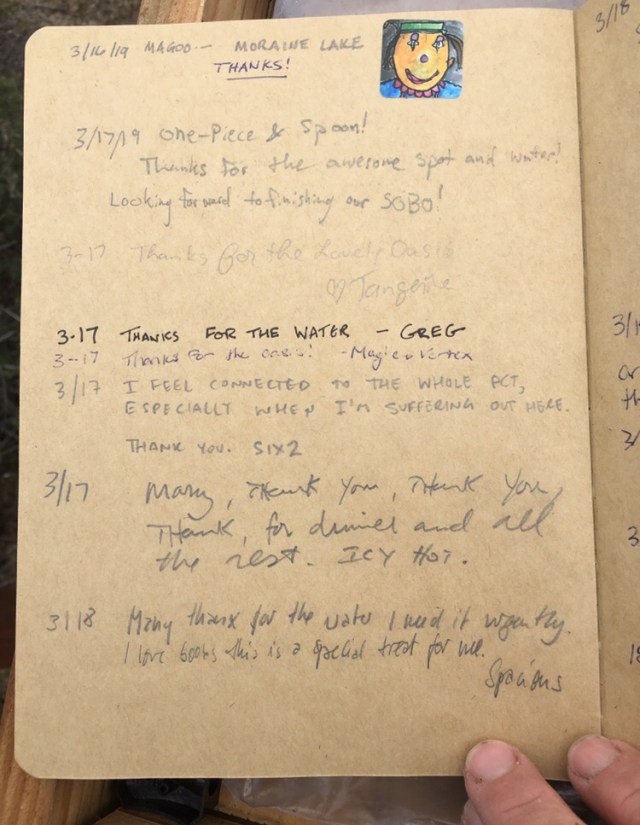 3/16/19 MAGOO - MORAINE LAKE
THANKS!
3/17/19 One-Piece & Spoon!
Thanks for the awesome spot and water!
Looking forward to finishing our SOBO!
3-17 Thanks for the Lovely Oasis
♡ Tangerine
3-17 THANKS FOR THE WATER - GREG
3-17 Thanks for the oasis! - Magic & Vertex
3/17 I FEEL CONNECTED TO THE WHOLE PCT,
ESPECIALLY WHEN I'M SUFFERING OUT HERE.
THANK YOU. SIX2
3/17 Mary, Thank You, Thank You,
Thank, for dinner and all
the rest. ICY HOT.
3/18 Many thanx for the water I need it urgently.
I love books this is a special treat for me.
3/18
3/
3/
3